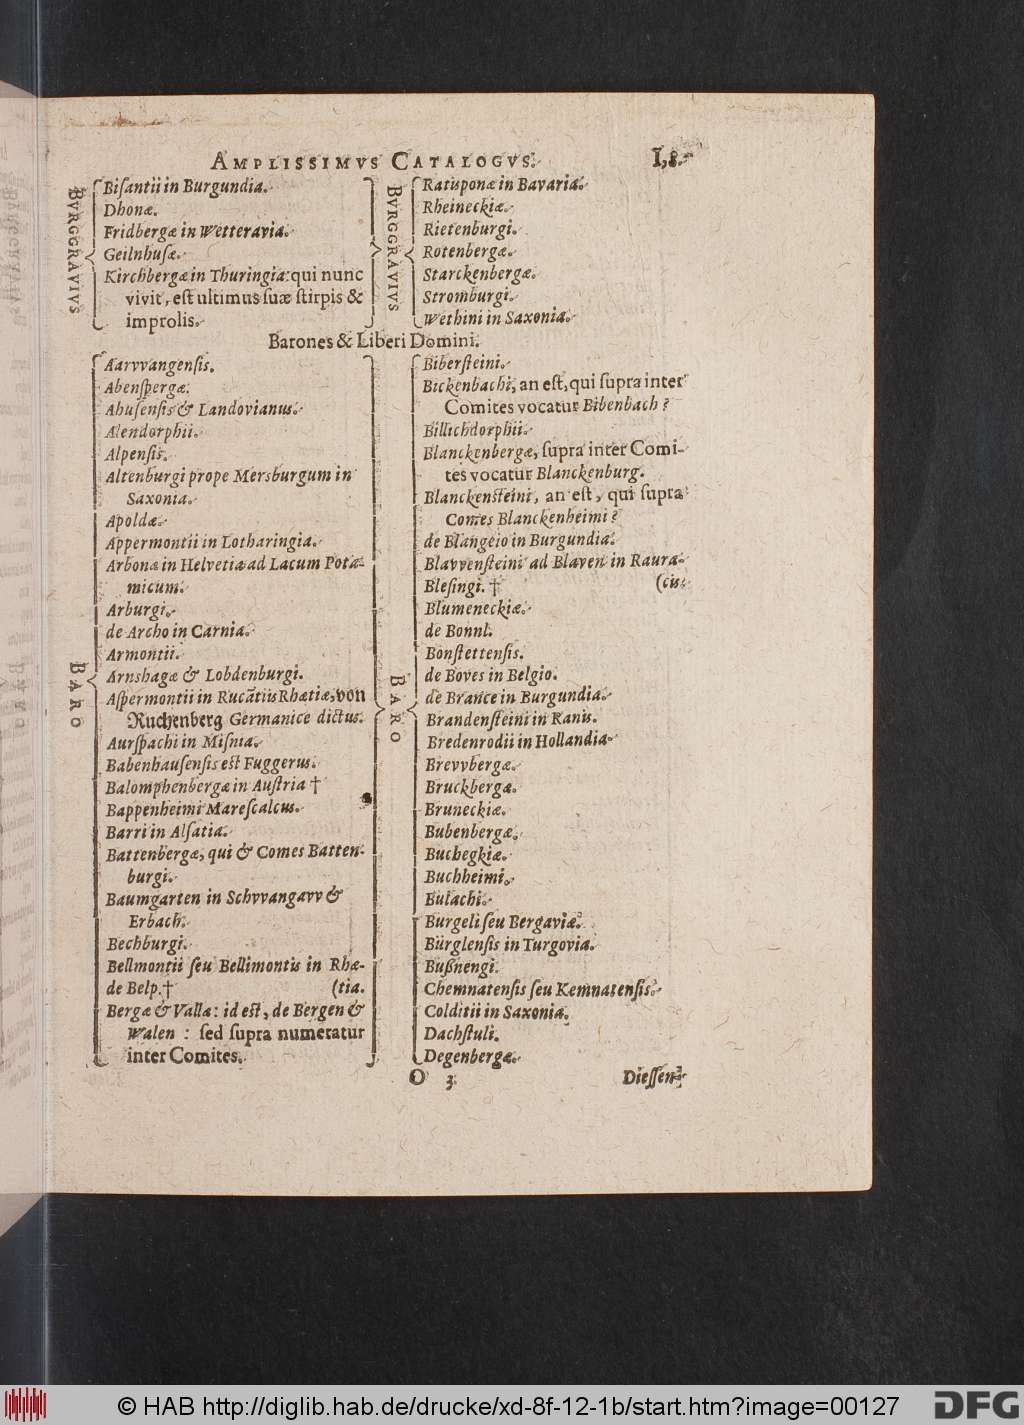 AMPLISSIMVS CATALOGVS.
BVRGGRAVIVS
Biſantii in Burgundia.
Dhonæ.
Fridbergæ in Wetteravia.
Geilnhuſæ.
Kirchbergæ in Thuringia: qui nunc
vivit, eſt ultimus ſuæ ſtirpis &
improlis.
BVRGGRAVIVS
Ratisponæ in Bavaria.
Rheineckiæ.
Rietenburgi.
Rotenbergæ.
Starckenbergæ.
Stromburgi.
Wethini in Saxonia.
Barones & Liberi Domini.
BARO
Aarvvangenſis.
Abenſpergæ.
Ahuſenſis & Landovianus.
Alendorphii.
Alpenſis.
Altenburgi prope Mersburgum in
Saxonia.
Apoldæ.
Appermontii in Lotharingia.
Arbonæ in Helvetia ad Lacum Pota-
micum.
Arburgi.
de Archo in Carnia.
Armontii.
Arnshagæ & Lobdenburgi.
Aſpermontii in Rucãtiis Rhætiæ, von
Ruchenberg Germanice dictus.
Aurſpachi in Miſnia.
Babenhauſenſis eſt Fuggerus.
Balomphenbergæ in Auſtria †
Bappenheimi Mareſcalcus.
Barri in Alſatia.
Battenbergæ, qui & Comes Batten-
burgi.
Baumgarten in Schvvangavv &
Erbach.
Bechburgi.
Bellmontii ſeu Bellimontis in Rhæ-
de Belp. † (tia.
Bergæ & Vallæ: id eſt, de Bergen &
Walen : ſed ſupra numeratur
inter Comites.
BARO
Biberſteini.
Bickenbachi, an eſt, qui ſupra inter
Comites vocatur Bibenbach ?
Billichdorphii.
Blanckenbergæ, ſupra inter Comi-
tes vocatur Blanckenburg.
Blanckenſteini, an eſt, qui ſupra
Comes Blanckenheimi ?
de Blangeio in Burgundia.
Blavvenſteini ad Blaven in Raura-
Bleſingi. † (cis.
Blumeneckiæ.
de Bonnl.
Bonſtettenſis.
de Boves in Belgio.
de Brance in Burgundia.
Brandenſteini in Ranis.
Bredenrodii in Hollandia.
Brevvbergæ.
Bruckbergæ.
Bruneckiæ.
Bubenbergæ.
Buchegkiæ.
Buchheimi.
Bulachi.
Burgeli ſeu Bergaviæ.
Bürglenſis in Turgovia.
Bußnengi.
Chemnatenſis ſeu Kemnatenſis.
Colditii in Saxonia.
Dachſtuli.
Degenbergæ.
O 3
Dieſſen-
© HAB http://diglib.hab.de/drucke/xd-8f-12-1b/start.htm?image=00127
DFG